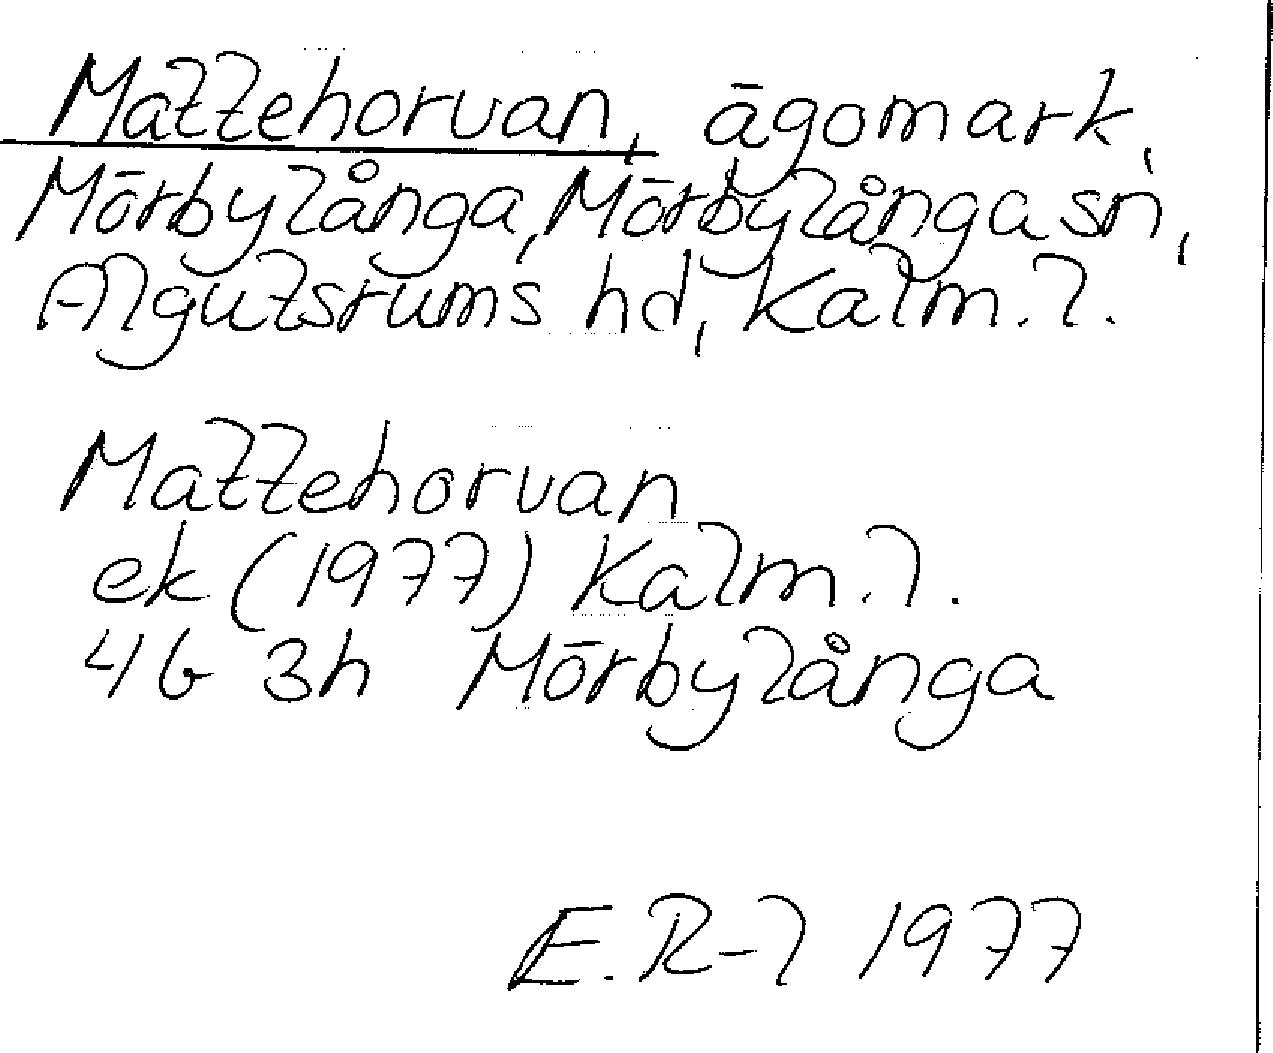 Mattehorvan, ägomark,
Mörbylånga, Mörbylånga sn,
Algutsrums hd, Kalm. l.
Mattehorvan
ek (1977) Kalm. l.
4G 3h Mörbylånga
E. R-l 1977